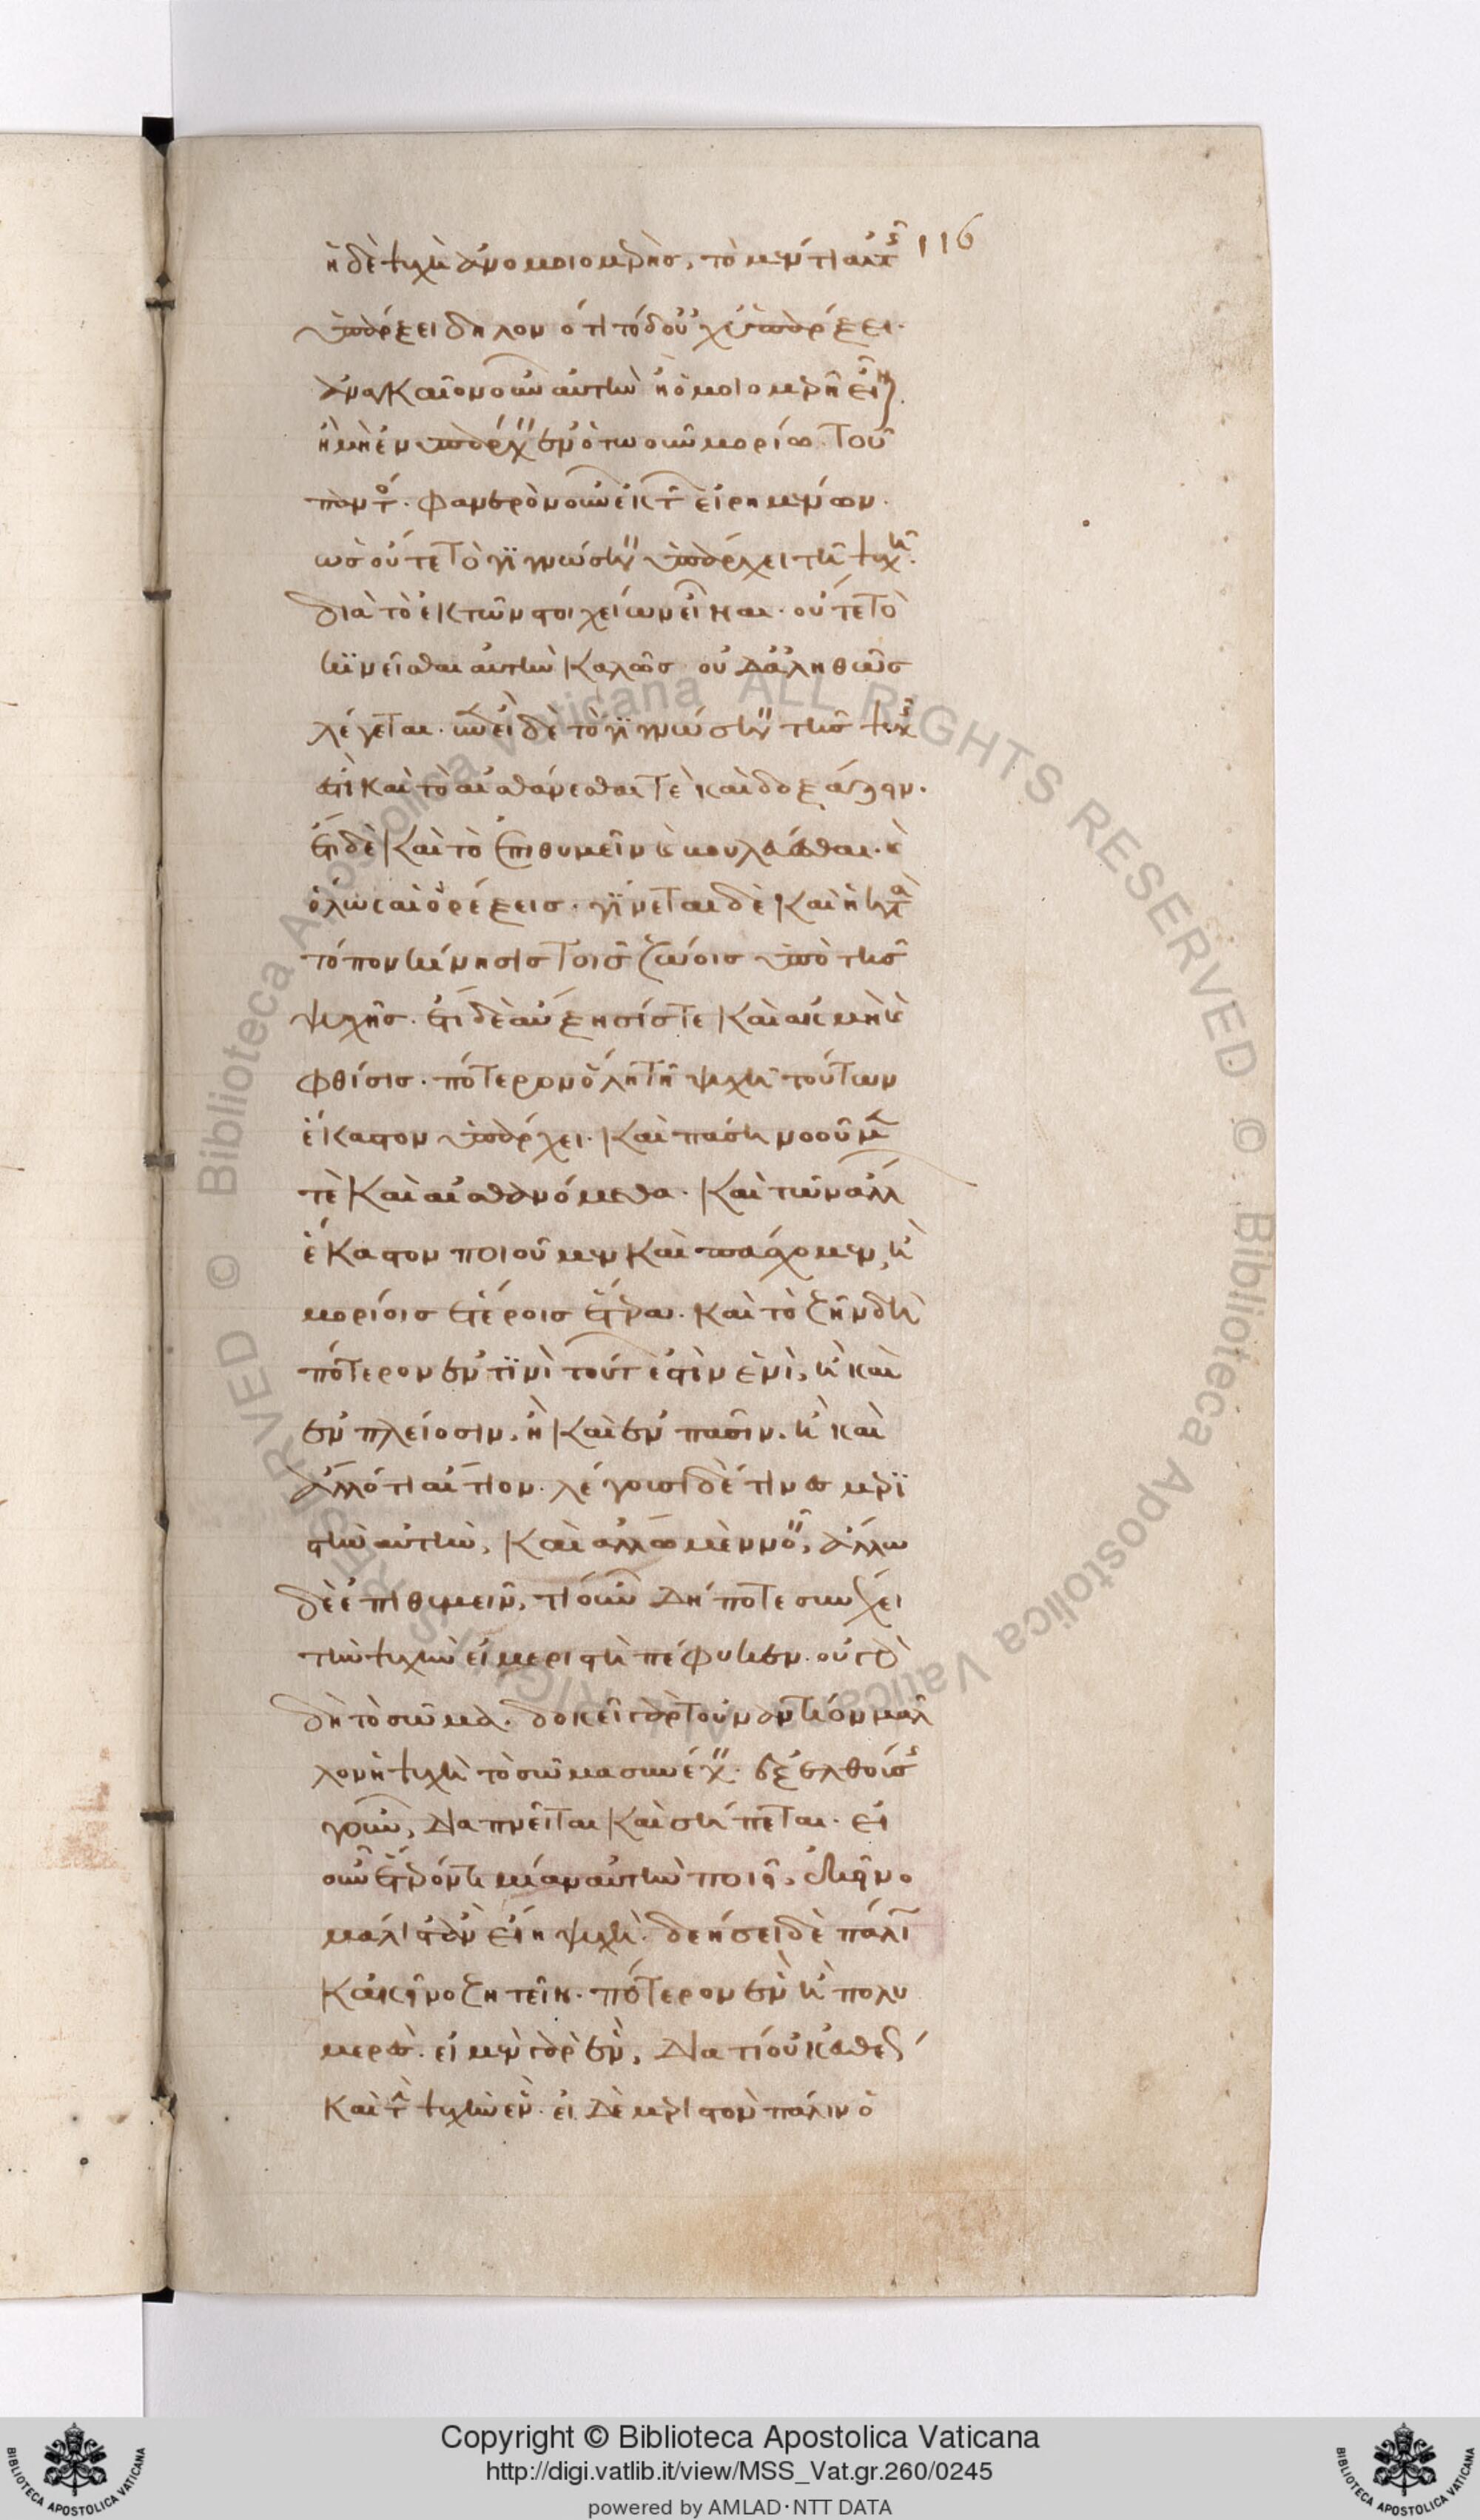 116
ἡ δὲ ψυχὴ ἀνομοιομερὴς, τὸ μέν τι αὐτῆς
ὑπάρξει δῆλον ὅτι τὸ δ' οὐχ ὑπάρξει.
ἀναγκαῖον οὖν αὐτὴν ἢ ὁμοιομερῆ εἶναι.
ἢ μὴ ἐνυπάρχειν ἐν ὁτωοῦν μορίω τοῦ
παντός. φανερὸν οὖν ἐκ τῶν εἰρημένων.
ὡς οὔτε τὸ γινώσκειν ὑπάρχει τῆ ψυχῆ.
διὰ τὸ ἐκ τῶν στοιχείων εἶναι. οὔτε τὸ
κινεῖσθαι αὐτὴν καλῶς οὐδ' ἀληθῶς
λέγεται. ἐπεὶ δὲ τὸ γινώσκειν τῆς ψυχῆς
ἐστὶ καὶ τὸ αἰσθάνεσθαί τε καὶ δοξάζειν.
ἔτι δὲ καὶ τὸ ἐπιθυμεῖν καὶ βουλεύεσθαι. καὶ
ὅλως αἱ ὀρέξεις. γίνεται δὲ καὶ ἡ κατὰ
τόπον κίνησις τοῖς ζώοις ὑπὸ τῆς
ψυχῆς. ἔτι δὲ αὔξησίς τε καὶ ἀκμὴ καὶ
φθίσις. πότερον ὅλη τῆ ψυχῆ τούτων
ἕκαστον ὑπάρχει. καὶ πάση νοοῦμέν
τε καὶ αἰσθανόμεθα. καὶ τῶν ἄλλων
ἕκαστον ποιοῦμεν καὶ πάσχομεν, ἢ
μορίοις ἑτέροις ἕτερα. καὶ τὸ ζῆν δὴ
πότερον ἔν τινι τούτων ἐστὶν ἑνὶ, ἢ καὶ
ἐν πλείοσιν, ἢ καὶ ἐν πᾶσιν. ἢ καὶ
ἄλλό τι αἴτιον. λέγουσι δέ τινες μερι
στὴν αὐτὴν, καὶ ἄλλω μὲν νοεῖν, ἄλλω
δὲ ἐπιθυμεῖν, τί οὖν δή ποτε συνέχει
τὴν ψυχὴν εἰ μεριστὴ πέφυκεν. οὐ γὰρ
δὴ τὸ σῶμα. δοκεῖ γὰρ τοὐναντίον μᾶλ
λον ἡ ψυχὴ τὸ σῶμα συνέχειν. ἐξελθούσης
γοῦν, διαπνεῖται καὶ σήπεται. εἰ
οὖν ἕτερόν τι μίαν αὐτὴν ποιεῖ, ἐκεῖνο
μάλιστ' ἂν εἴη ψυχή. δεήσει δὲ πάλιν
κἀκεῖνο ζητεῖν. πότερον ἓν ἢ πολυ
μερές. εἰ μὲν γὰρ ἓν, διατί οὐκ εὐθέως
καὶ τὴν ψυχὴν ἕν. εἰ δὲ μεριστὸν πάλιν ὁ
Copyright © Biblioteca Apostolica Vaticana
http://digi.vatlib.it/view/MSS_Vat.gr.260/0245
powered by AMLAD·NTT DATA